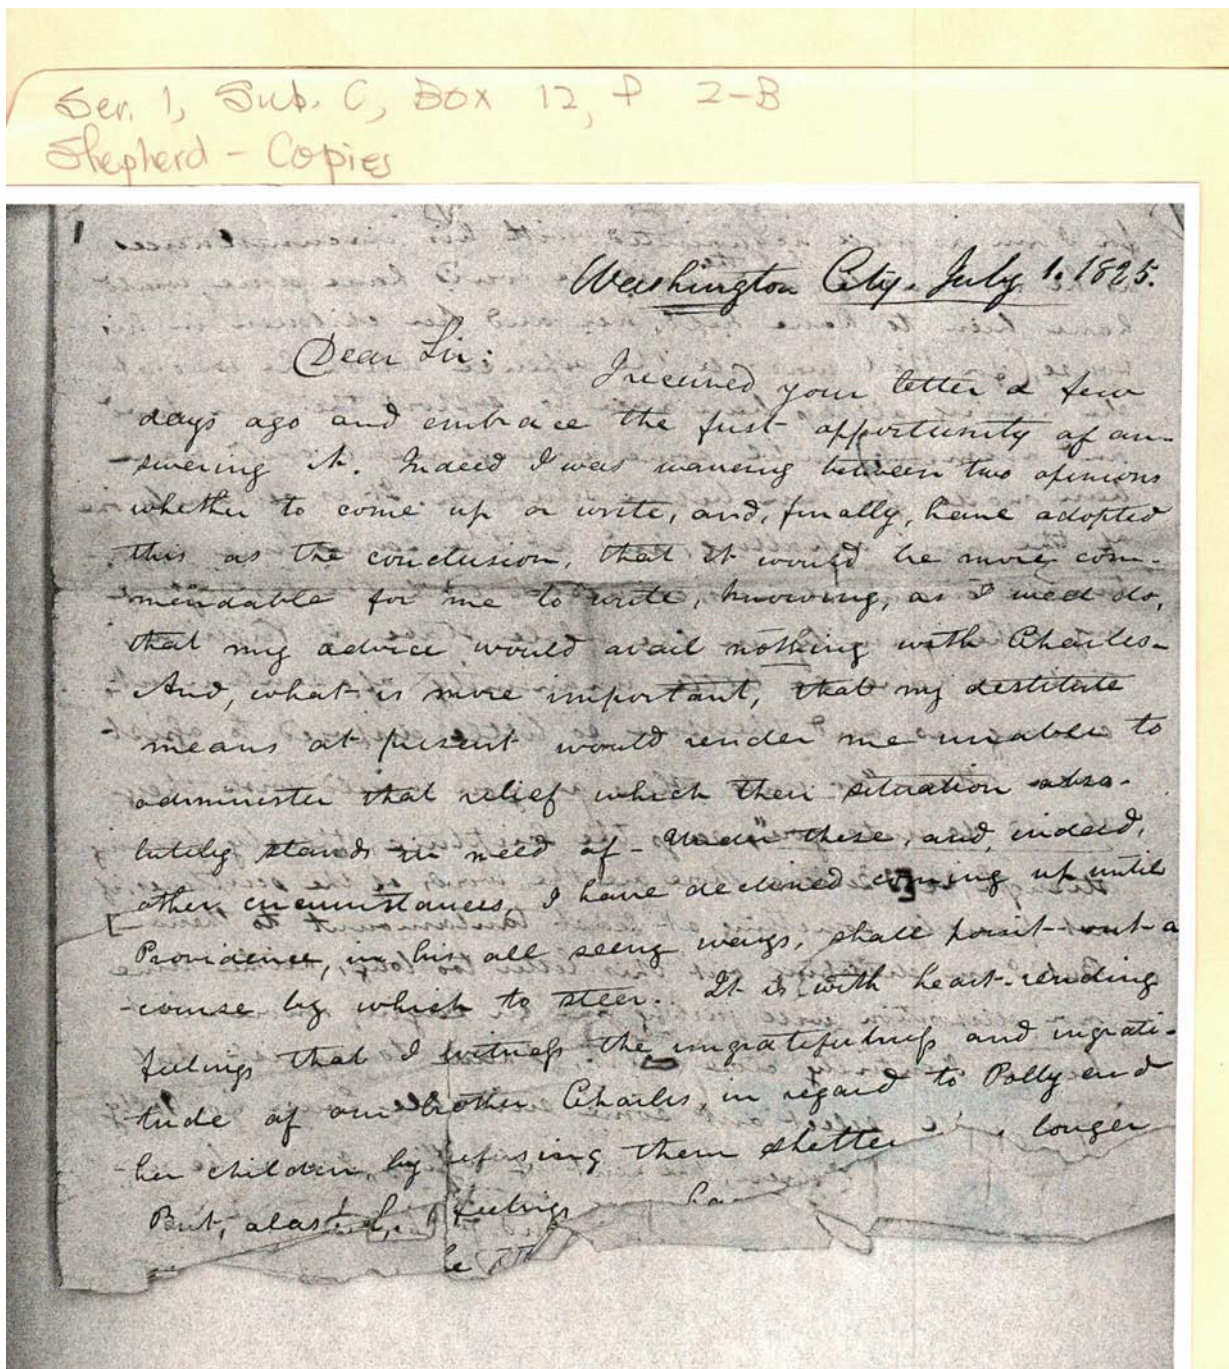 Ser. 1, Sub. C, Box 12, F 2-B
Shepherd - Copies
1
Washington City. July 1. 1825.
Dear Sir:
I received your letter a few
days ago and embrace the first opportunity of an-
swering it. Indeed I was wavering between two opinions
whether to come up or write, and, finally, have adopted
this as the conclusion, that it would be more com-
mendable for me to write, knowing, as I need do,
that my advice would avail nothing with Charles-
And, what is more important, that my destitute
means at present would render me unable to
administer that relief which their situation abso-
lutely stands in need of - Under these, and, indeed,
other circumstances, I have declined coming up until
Providence, in his all seeing ways, shall point out a
course by which to steer. It is with heart-rending
feelings that I witness the ungratefulness and ingrati-
tude of our brother Charles, in regard to Polly and
her children, by refusing them shelter longer
But, alas! feelings